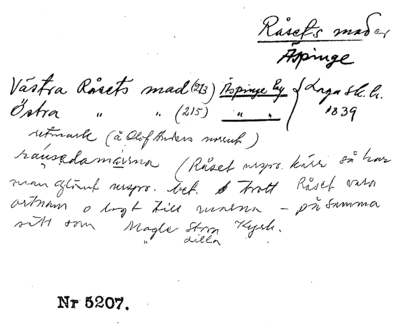 Råsets mader
Äspinge
Västra Råsets mad (213) Äspinge by Laga sk. h.
Östra " " (215) " " 1839
utmark (å Olof Anders
råusedamarna (Råset urspr. kärr så har
man glömt urspr. bet. o trott Råset vara
ortnamn o lagt till marna – på samma
sätt som Magle Stora Kyrk.
" Lilla "
Nr 5207.